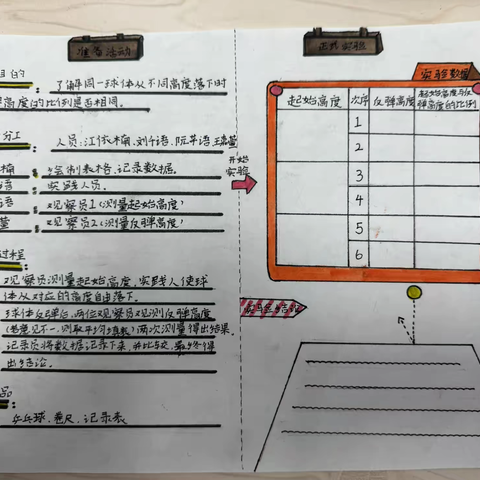 准备活动
目的
了解同一球体从不同高度落下时
高度的比例是否相同。
分工
人员：江依楠、刘千语、阮华语、
楠：绘制表格、记录数据。
语：实践人员。
语：观察员1（测量起始高度）
萱：观察员2（测量反弹高度）
过程
观察员测量起始高度，实践人使球
体从对应的高度自由落下。
球体反弹后，两位观察员观测反弹高度
（若意见不一，则取平均）两次测量得出结果。
记录员将数据记录下来，并比较，最终得
出结论。
品
乒乓球、卷尺、记录表
开始
实验
正式实验
实验数据
起始高度 次序 反弹高度 起始高度与反
弹高度的比例
1
2
3
4
5
6